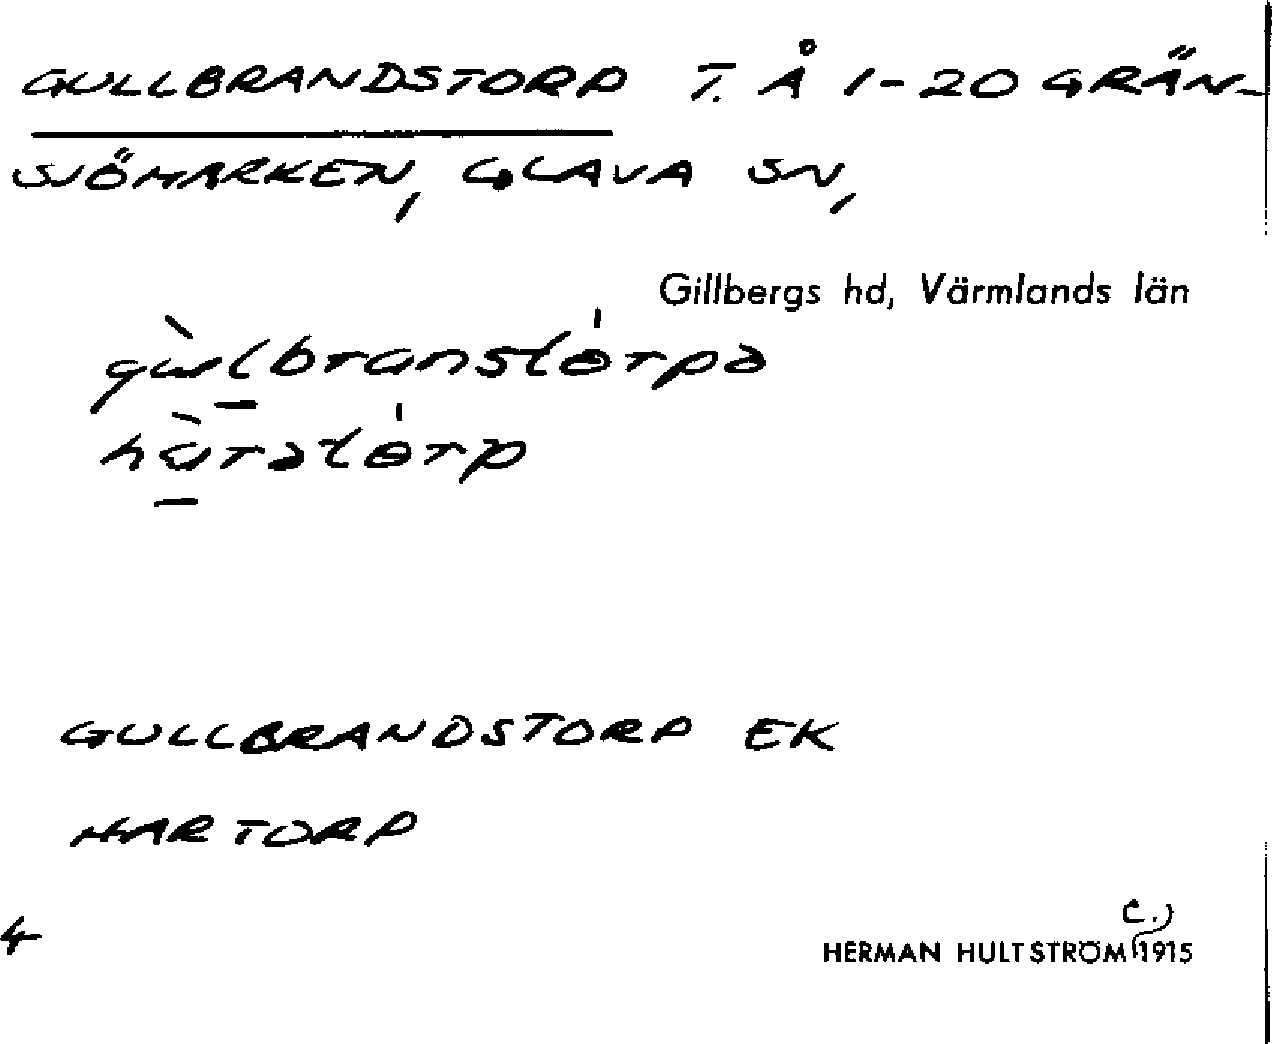 GULLBRANDSTORP T. Å 1-20 GRÄN-
SJÖMARKEN, GLAVA SN,
Gillbergs hd, Värmlands län
GULLBRANDSTORP EK
HARTORP
4
c.,
HERMAN HULTSTRÖM 1915